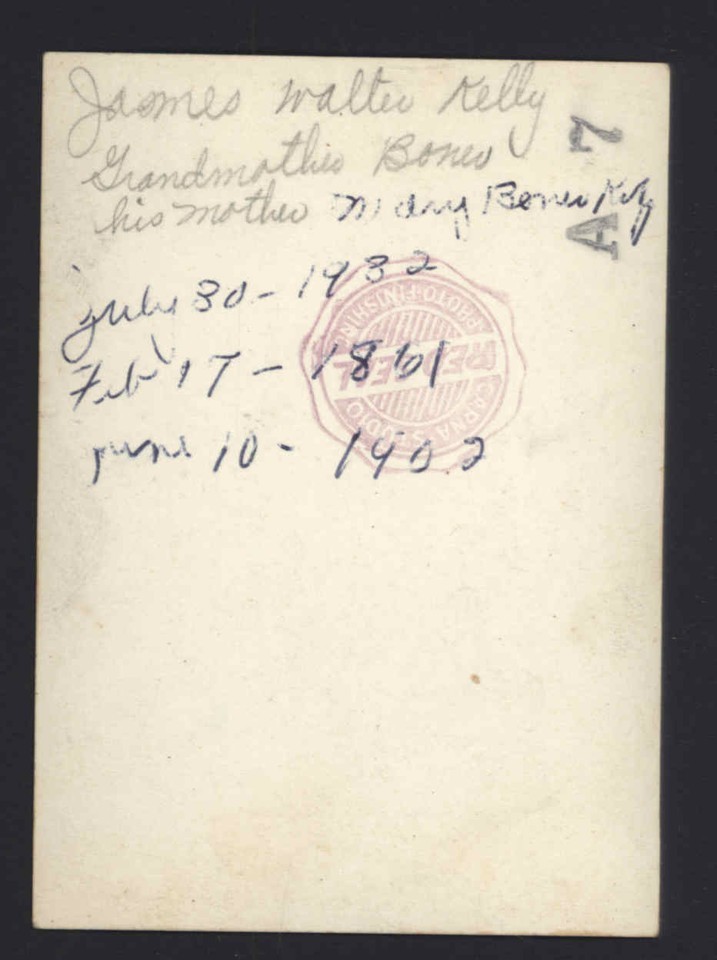 James Walter Kelly
Grandmother Boner
his mother Mary Boner Kelly
A 7
July 30 - 1932
Feb 17 - 1861
June 10 - 1902
PHOTO-FINISHING
RED SEAL
STUDIO